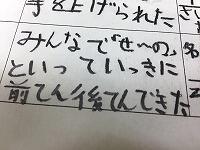 手を上げられた
みんなで「せ〜の」
といっていっきに
前てん後てんできた
名